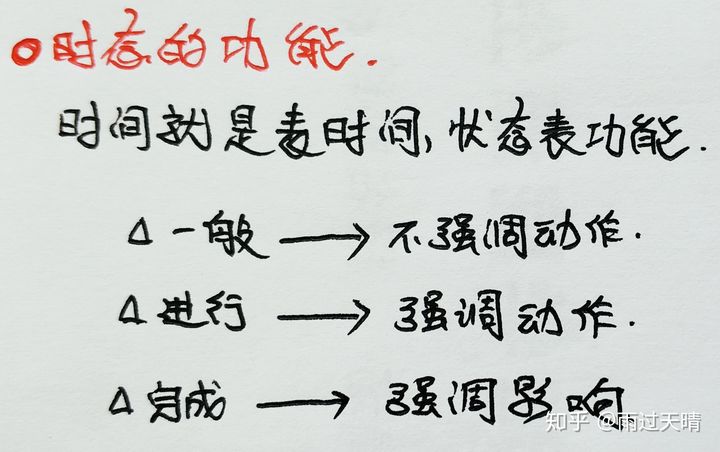 时态的功能.
时间就是表时间,状态表功能.
△ 一般 → 不强调动作.
△ 进行 → 强调动作.
△ 完成 → 强调影响
知乎 @雨过天晴